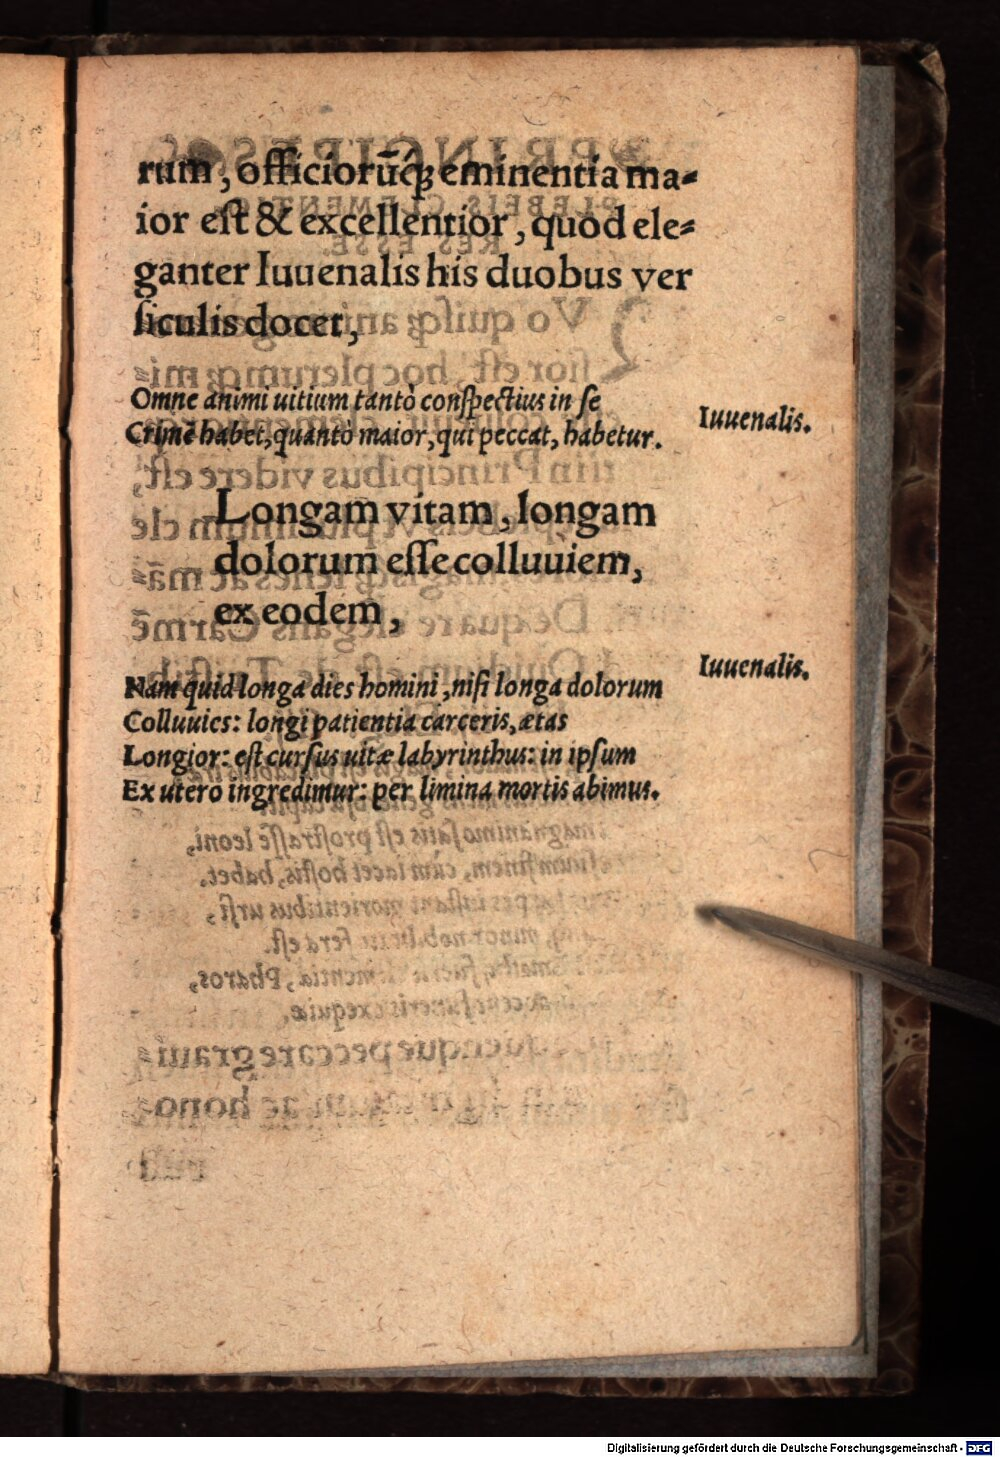 rum, officiorūq́; eminentia ma-
ior eſt & excellentior, quod ele-
ganter Iuuenalis his duobus ver
ſiculis docet,
Omne animi uitium tantò conſpectius in ſe
Crimē habet, quantò maior, qui peccat, habetur.
Iuuenalis.
Longam vitam, longam
dolorum eſſe colluuiem,
ex eodem,
Iuuenalis.
Nam quid longa dies homini, niſi longa dolorum
Colluuies: longi patientia carceris, ætas
Longior: eſt curſus uitæ labyrinthus: in ipſum
Ex utero ingredimur: per limina mortis abimus.
Digitalisierung gefördert durch die Deutsche Forschungsgemeinschaft - DFG